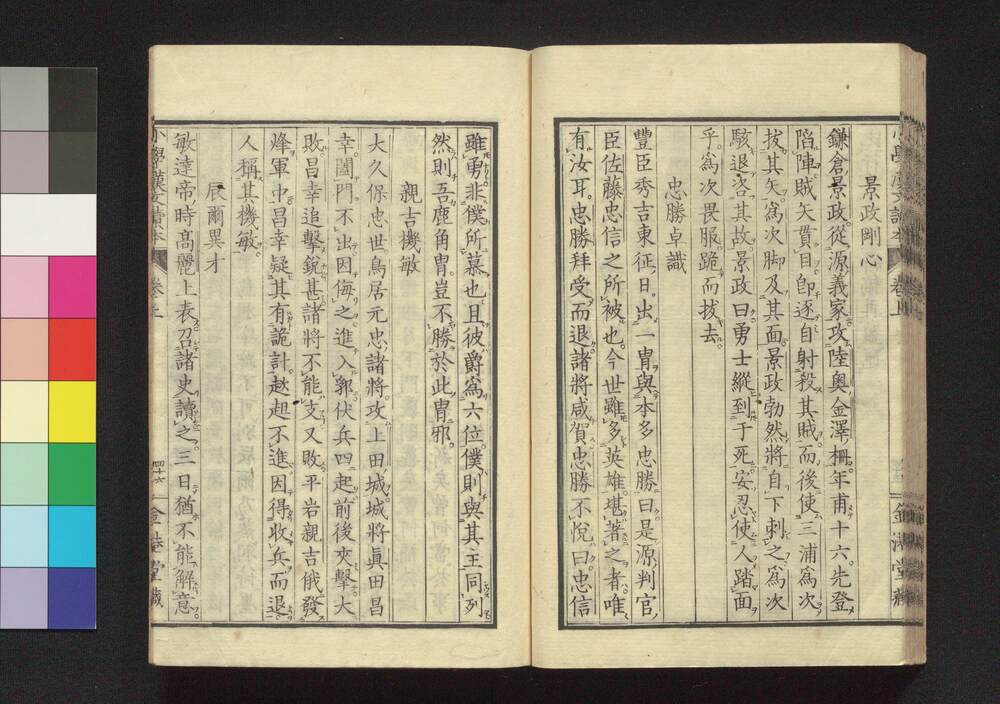 景政剛心
鎌倉景政從源義家攻陸奧金澤柵年甫十六先登
陷陣賊矢貫目卽逐自射殺其賊而後使三浦爲次
拔其矢爲次脚及其面景政勃然將自下刺之爲次
駭退咨其故景政曰勇士縱到于死安忍使人踏面
乎爲次畏服跪而拔去
忠勝卓識
豐臣秀吉東征日出一冑與本多忠勝曰是源判官
臣佐藤忠信之所被也今世雖多英雄堪著之者唯
有汝耳忠勝拜受而退諸將咸賀忠勝不悅曰忠信
雖勇非僕所慕也且彼爵爲六位僕則與其主同列
然則吾鹿角冑豈不勝於此冑邪
親吉機敏
大久保忠世鳥居元忠諸將攻上田城城將眞田昌
幸闔門不出因侮之進入郭伏兵四起前後夾擊大
敗昌幸追擊銳甚諸將不能支又敗平岩親吉俄發
烽軍中昌幸疑其有詭計趑趄不進因得收兵而退
人稱其機敏
辰爾異才
敏達帝時高麗上表召諸史讀之三日猶不能解意
小學漢文讀本 卷之上 四十六 金港堂藏